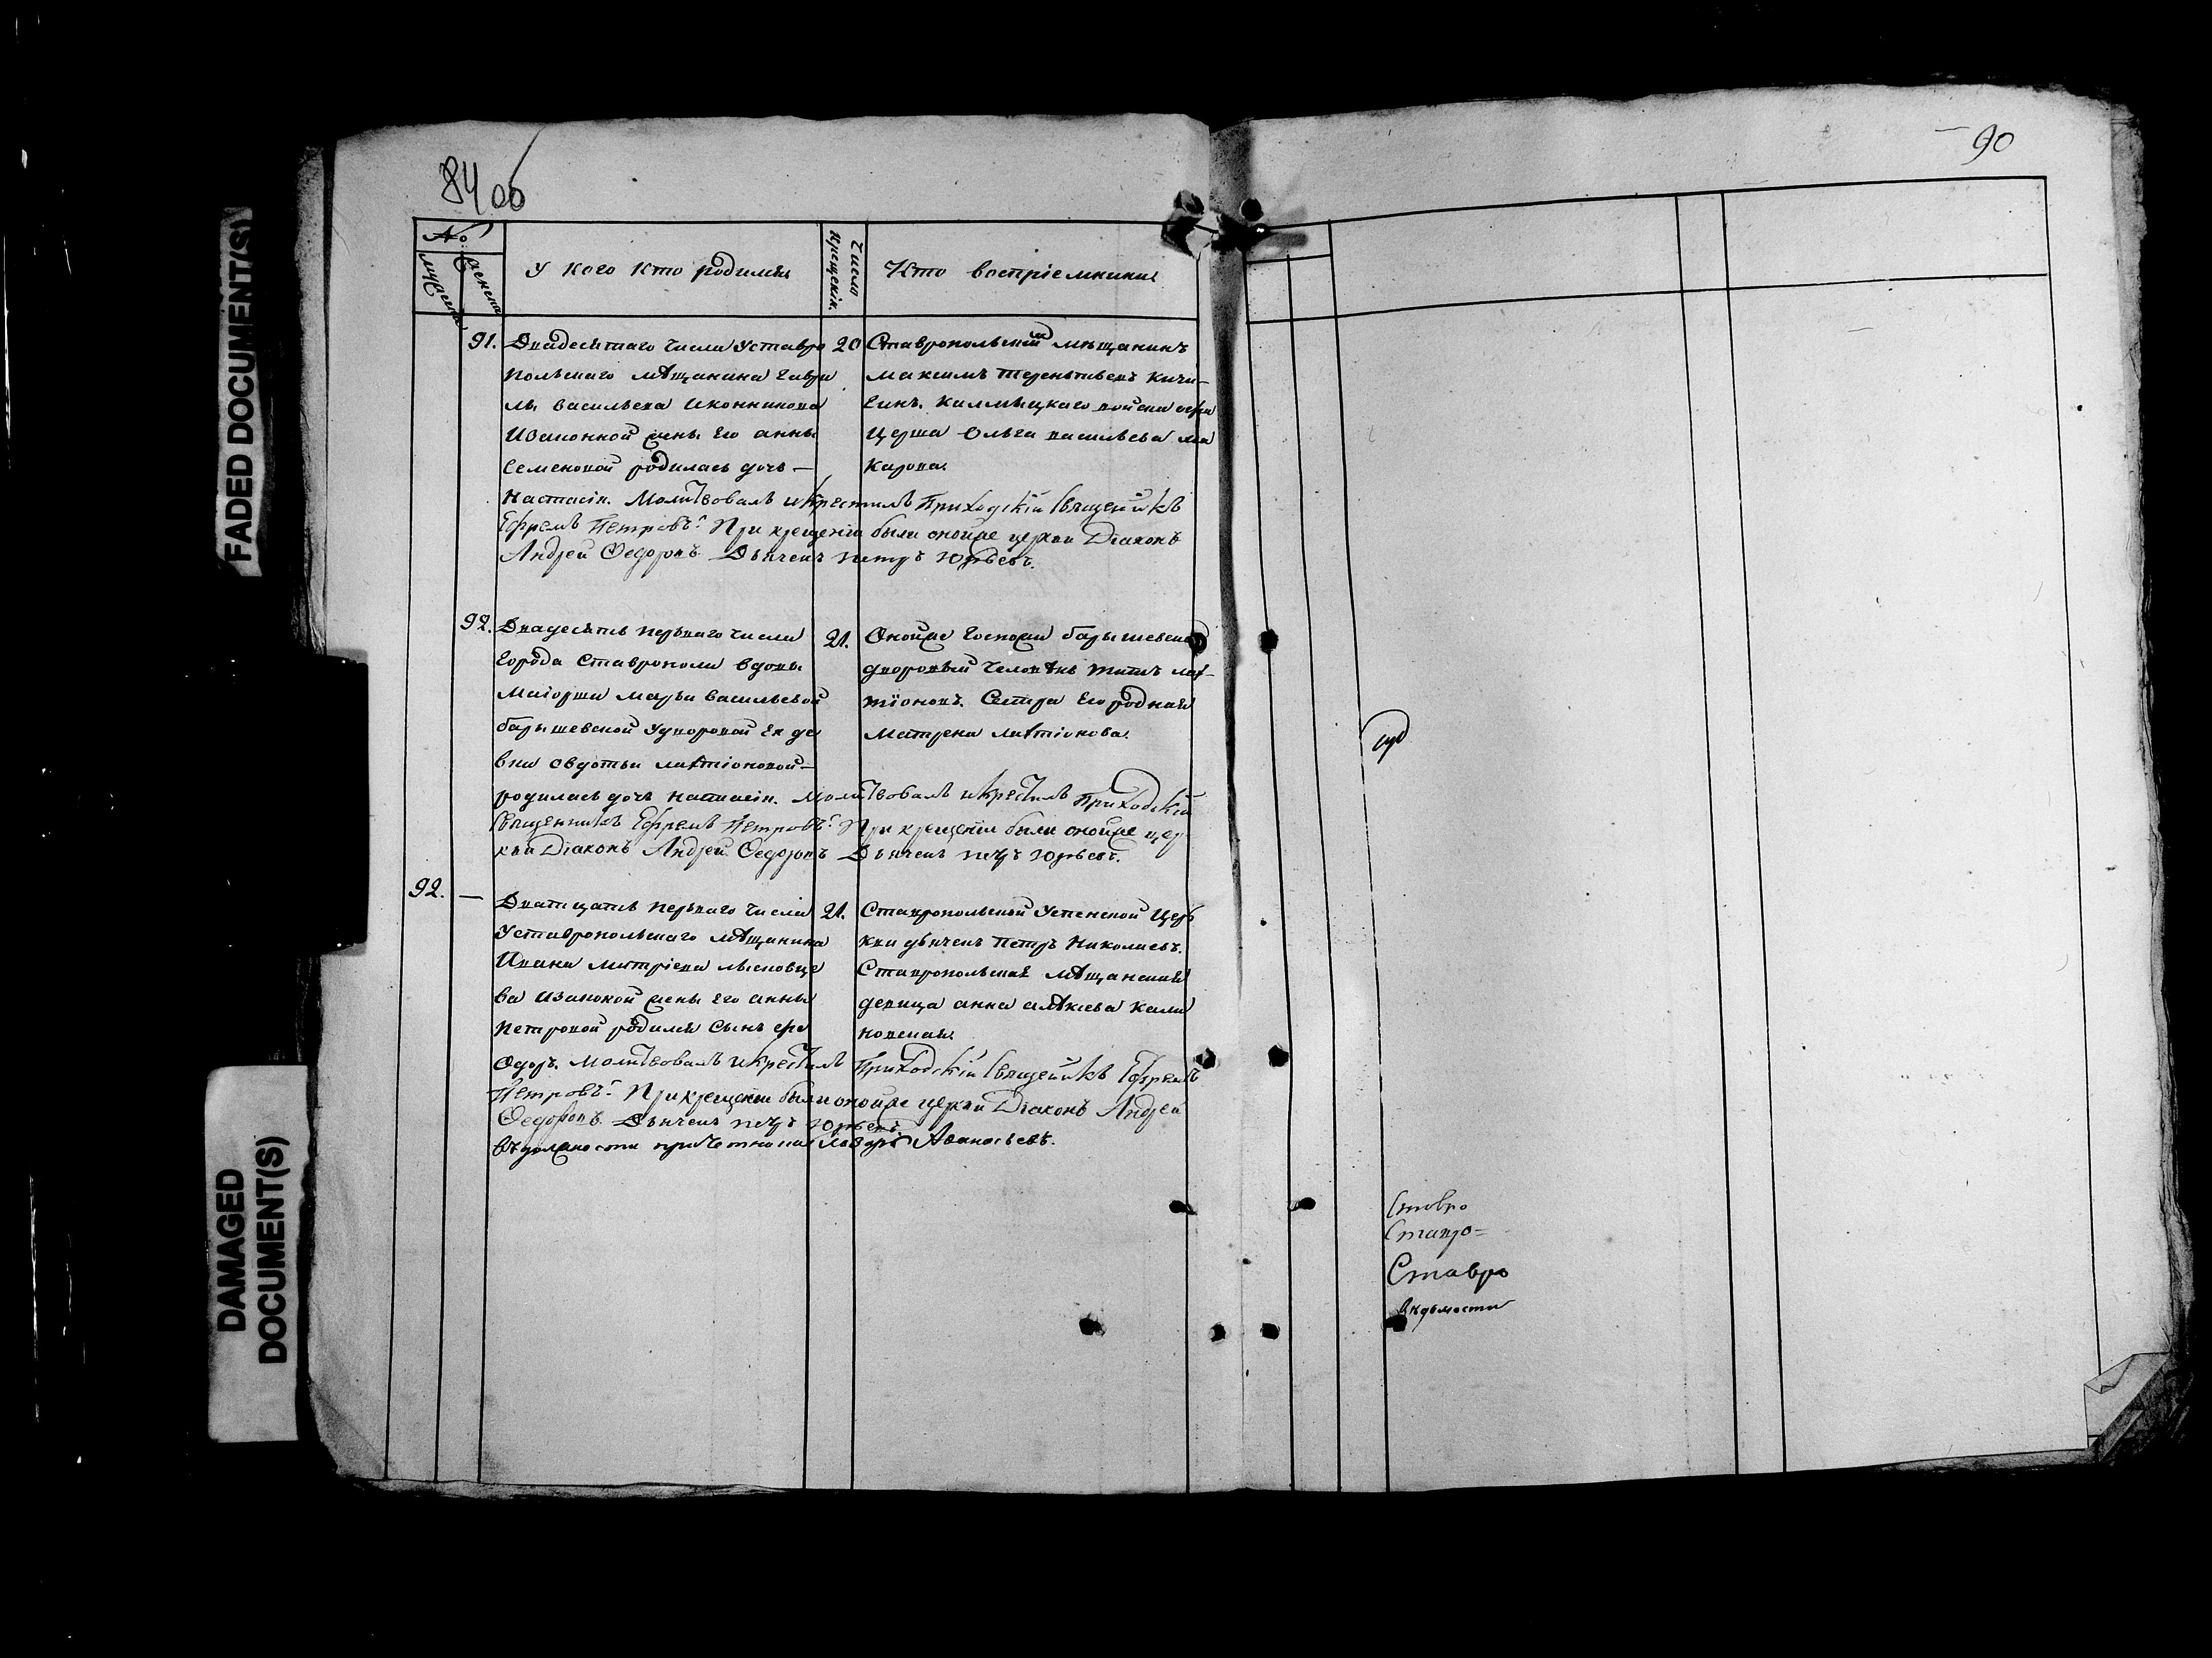 FADED DOCUMENT(S)
DAMAGED
DOCUMENT(S)
84 об
90
№
мужеска
женска
У кого кто родился
Число
крещенія.
Кто воспріемники
91.
Двадесятаго числа Уставро
польскаго мѣщанина Гаври
лы васильева Иконникова
Изаконной жены Его анны
Семеновой родилась дочь —
настасія. Молитвовалъ и крестилъ Приходскій священникъ
Ефремъ Петровъ. При крещеніи были оной же церкви Діаконъ
Андрей Ѳедоровъ Дьячекъ петръ Юрьевъ.
20
Ставропольской мѣщанинъ
максимъ терентьевъ Кичи-
гинъ. Калмыцкаго войска офи
церша Ольга васильева ма
карова.
92.
Двадесять перваго числа
города Ставрополя вдовы
Маіорши марьи васильевой
барышевской Удворовой Ея де
вки овдотьи лактіоновой —
родилась дочь настасія. Молитвовалъ и крестилъ Приходскій
священникъ Ефремъ Петровъ. При крещеніи были оной же цер-
кви Діаконъ Андрей Ѳедоровъ Дьячекъ петръ Юрьевъ.
21.
Оной же Госпожи барышевской
дворовый человѣкъ титъ лак-
тіоновъ. Сестра Его родная
матрена лактіонова.
92. —
Дватцать перваго числа
Уставропольскаго мѣщанина
Ивана митріева лысковце
ва Изаконой жены Его анны
петровой родился сынъ фе
одоръ. Молитвовалъ и крестилъ Приходскій священникъ Ефремъ
Петровъ. При крещеніи были оной же церкви Діаконъ Андрей
Ѳедоровъ. Дьячекъ петръ Юрьевъ
въ должности причетника Аѳанасьевъ.
21.
Ставропольской Успенской Цер
кви дьячекъ петръ николаевъ.
Ставропольская мѣщанская
девица анна алѣксева кали
новская.
Ставро
Ставро=
Ставро